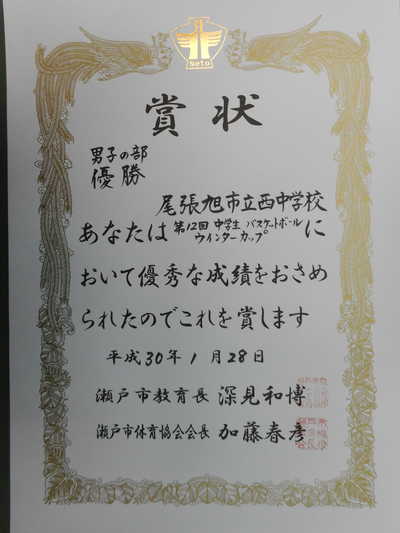 Seto
賞状
男子の部
優勝
尾張旭市立西中学校
あなたは第12回 中学生 バスケットボールウインターカップに
おいて優秀な成績をおさめ
られたのでこれを賞します
平成30年1月28日
瀬戸市教育長 深見和博
瀬戸市体育協会会長 加藤春彦